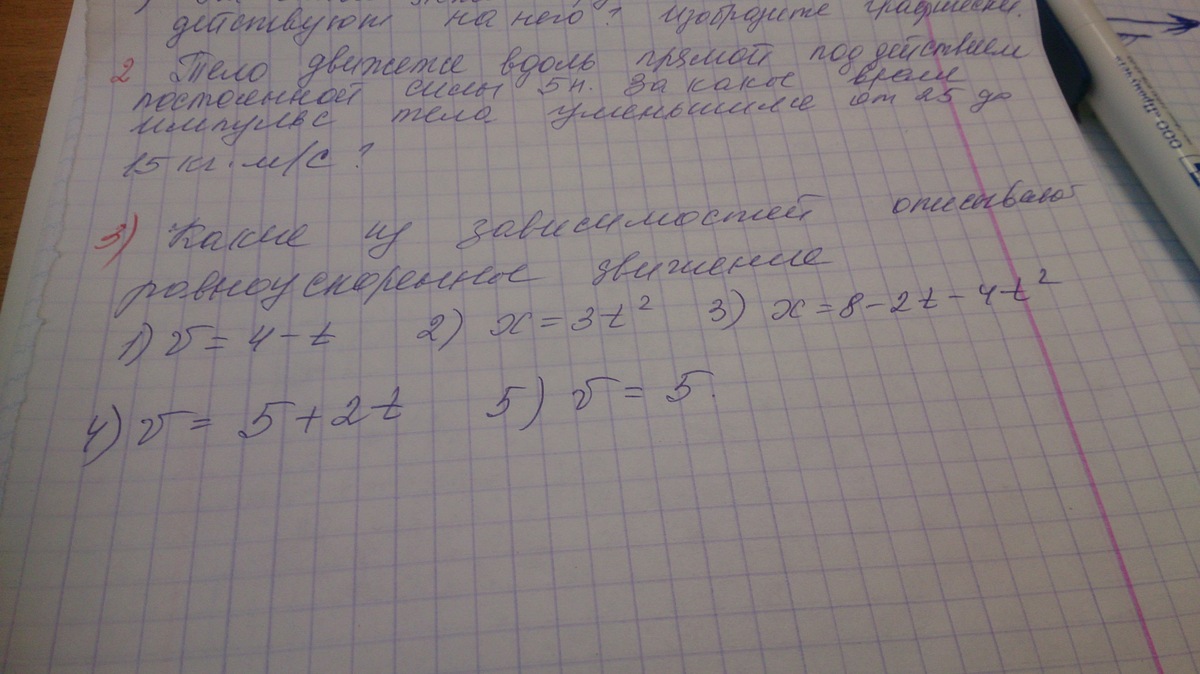 действуют на него? Изобразите графически.
2 Тело движется вдоль прямой под действием
постоянной силы 5 н. За какое время
импульс тела уменьшился от 25 до
15 кг·м/с?
3) Какие из зависимостей описывают
равноускоренное движение
1) v = 4 - t 2) x = 3t² 3) x = 8 - 2t - 4t²
4) v = 5 + 2t 5) v = 5.
ООО